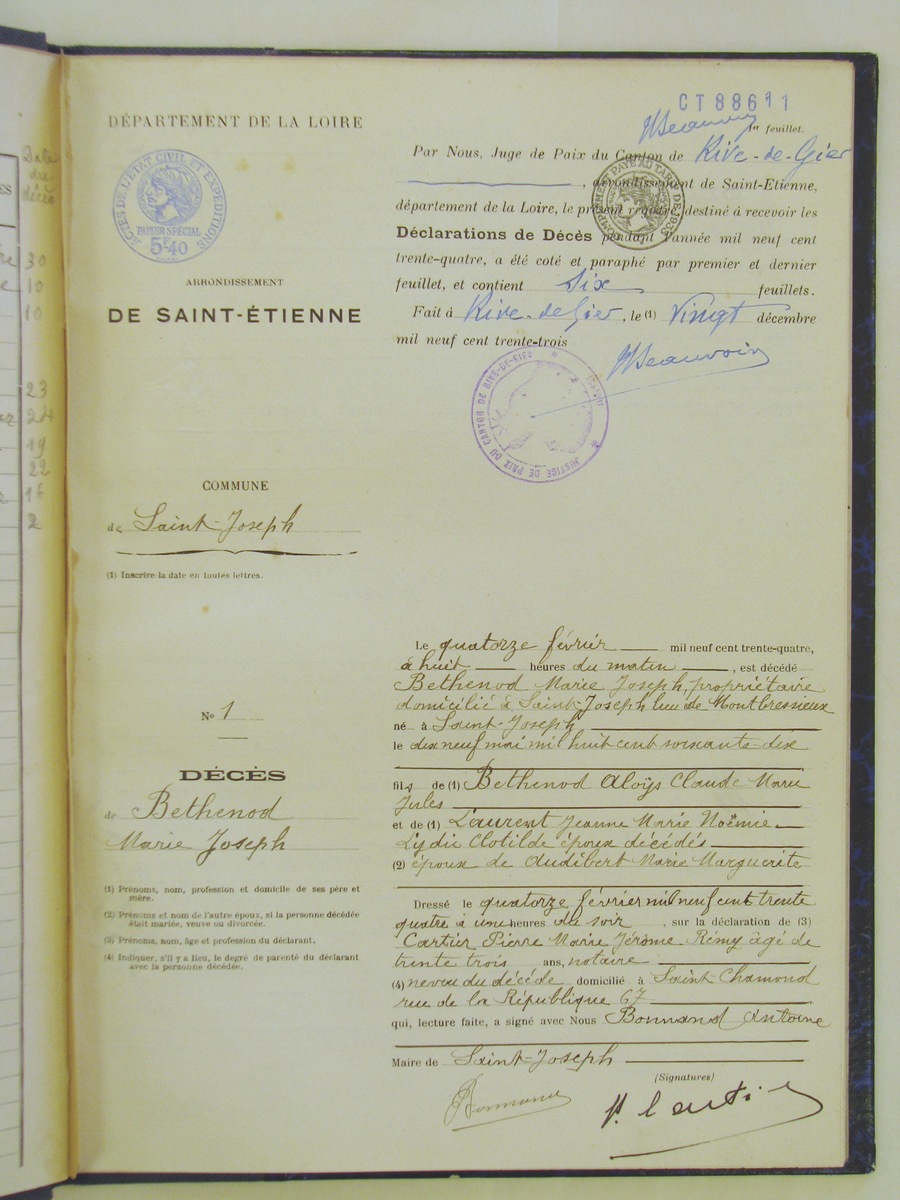 Date
du
décès
30
10
10
23
24
19
22
16
2
DÉPARTEMENT DE LA LOIRE
ACTES DE L'ÉTAT CIVIL ET EXPÉDITIONS
PAPIER SPÉCIAL
5F.40
ARRONDISSEMENT
DE SAINT-ÉTIENNE
COMMUNE
de Saint-Joseph
(1) Inscrire la date en toutes lettres.
N° 1
DÉCÈS
de Bethenod
Marie Joseph
(1) Prénoms, nom, profession et domicile de ses père et
mère.
(2) Prénoms et nom de l'autre époux, si la personne décédée
était mariée, veuve ou divorcée.
(3) Prénoms, nom, âge et profession du déclarant.
(4) Indiquer, s'il y a lieu, le degré de parenté du déclarant
avec la personne décédée.
CT88611
HBeauvoir
1er feuillet.
Par Nous, Juge de Paix du Canton de Rive-de-Gier
, arrondissement de Saint-Etienne,
département de la Loire, le présent registre destiné à recevoir les
Déclarations de Décès pendant l'année mil neuf cent
trente-quatre, a été coté et paraphé par premier et dernier
feuillet, et contient Six feuillets.
Fait à Rive-de-Gier, le (1) Vingt décembre
mil neuf cent trente-trois
HBeauvoir
COMPLEMENT PAYÉ AU TARIF DE 193
JUSTICE DE PAIX DU CANTON DE RIVE-DE-GIER
Le quatorze février mil neuf cent trente-quatre,
à huit heures du matin, est décédé
Bethenod Marie Joseph, propriétaire
domicilié à Saint-Joseph lieu de Montbressieux
né à Saint-Joseph
le dix neuf mai mil huit cent soixante dix
fils de (1) Bethenod Aloÿs Claude Marie
Jules
et de (1) Laurent Jeanne Marie Noëmie
Lydie Clotilde époux décédés
(2) époux de Audibert Marie Marguerite
Dressé le quatorze février mil neuf cent trente
quatre à une heures du soir, sur la déclaration de (3)
Cartier Pierre Marie Jérôme Rémy âgé de
trente trois ans, notaire
(4) neveu du décédé domicilié à Saint Chamond
rue de la République 67
qui, lecture faite, a signé avec Nous Bonnand Antoine
Maire de Saint-Joseph
(Signatures)
Bonnand
P. Cartier